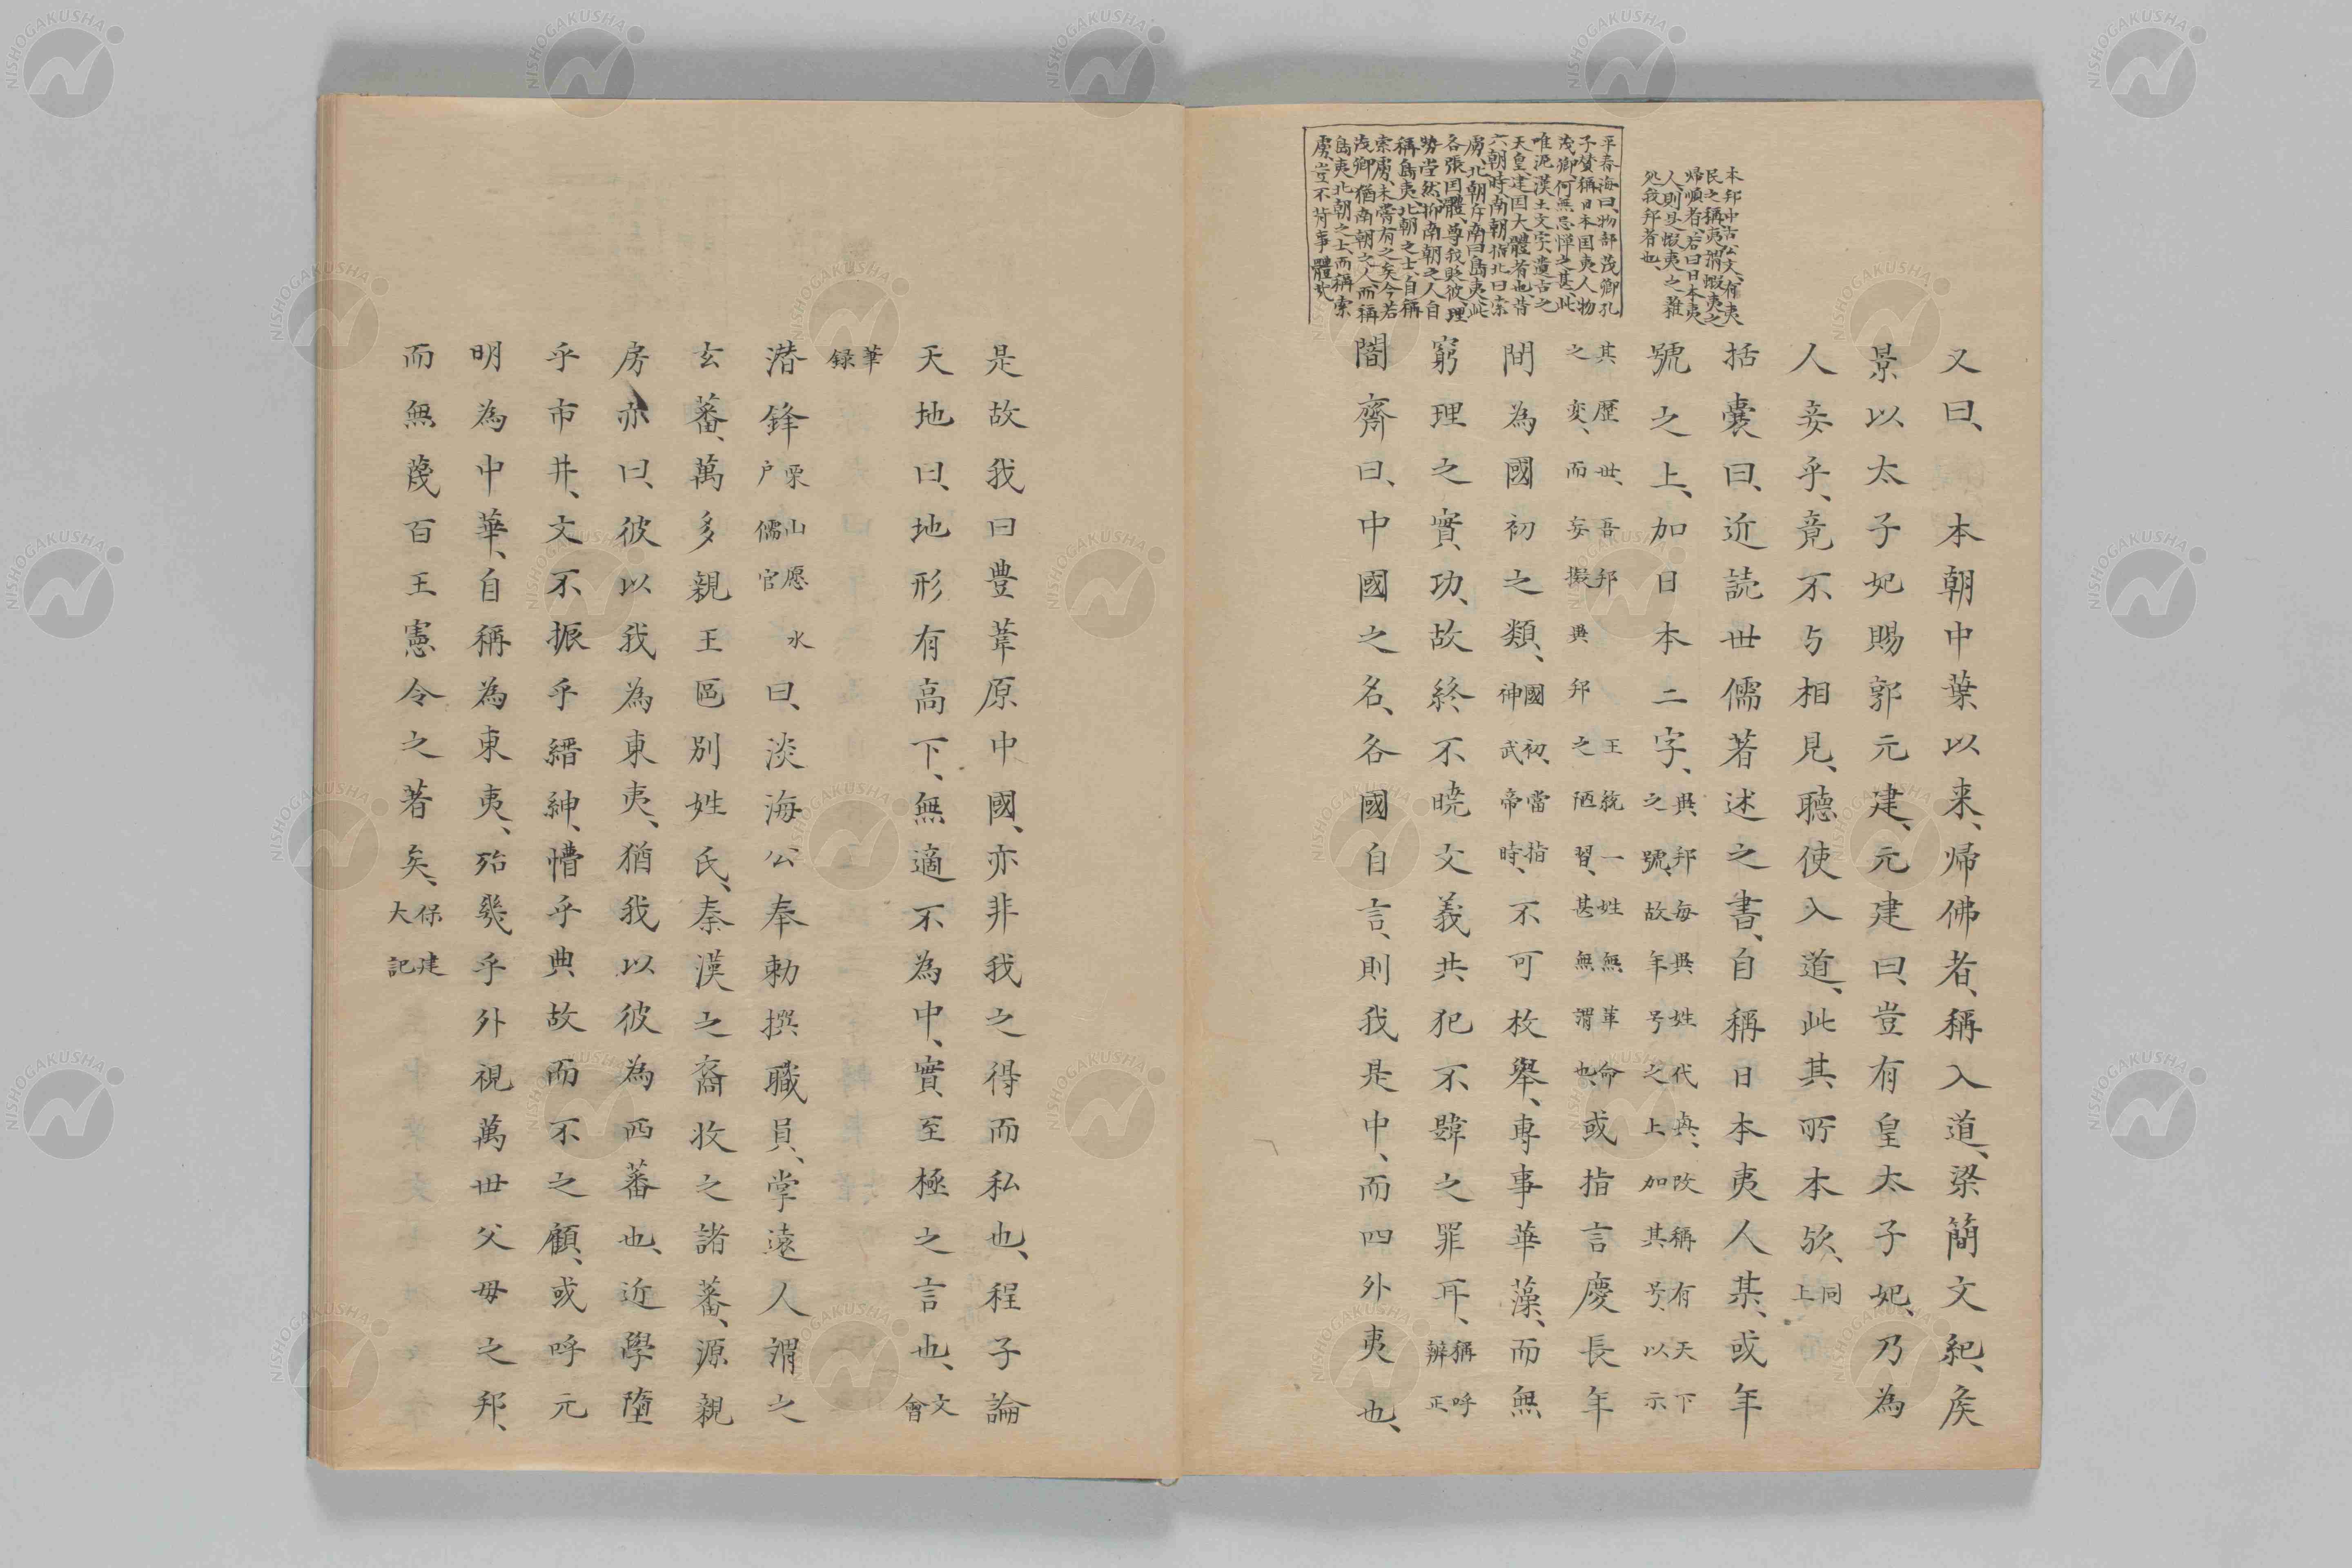 本邦中古公文、有夷
民之稱夷、謂蝦夷之
帰順者、若曰日本夷
人、則是蝦夷之雜
処我邦者也
平春海曰、物部茂卿孔
子賛稱日本国夷人物
茂卿、何無忌憚之甚、此
唯泥漢土文字、遺古之
天皇、建国大體者也、昔
六朝時南朝指北曰索
虜、北朝斥南曰島夷、此
各張国體、尊我貶彼、理
勢當然、抑南朝之人自
稱島夷、北朝之士、自稱
索虜、未嘗有之矣、今若
茂卿、猶南朝之人、而稱
島夷、北朝之士、而稱索
虜、豈不背事體哉
又曰、本朝中葉以来、帰佛者、稱入道、梁簡文紀、矦
景以太子妃賜郭元建、元建曰、豈有皇太子妃、乃為
人妾乎、竟不与相見、聽使入道、此其所本欤、同上
括嚢曰、近読世儒著述之書、自稱日本夷人某、或年
號之上、加日本二字、異邦每異姓代興、改稱有天下之號、故年号之上加其号、以示
其歷世、吾邦王統一姓無革命之変、而妄擬異邦之陋習、甚無謂也、或指言慶長年
間為國初之類、國初、當指神武帝時、不可枚舉、專事華藻、而無
窮理之實功、故終不曉文義共犯不韙之罪耳、稱呼辨正
闇齋曰、中國之名、各國自言、則我是中、而四外夷也、
是故我曰豊葦原中國、亦非我之得而私也、程子論
天地曰、地形有高下、無適不為中、實至極之言也、文會
筆録
潜鋒栗山愿水戸儒官曰、淡海公奉勅撰職員、掌遠人謂之
玄蕃、萬多親王區別姓氏、秦漢之裔收之諸蕃、源親
房亦曰、彼以我為東夷、猶我以彼為西蕃也、近學墮
乎市井、文不振乎縉紳、懵乎典故而不之顧、或呼元
明為中華、自稱為東夷、殆幾乎外視萬世父母之邦、
而無蔑百王憲令之著矣、保建大記